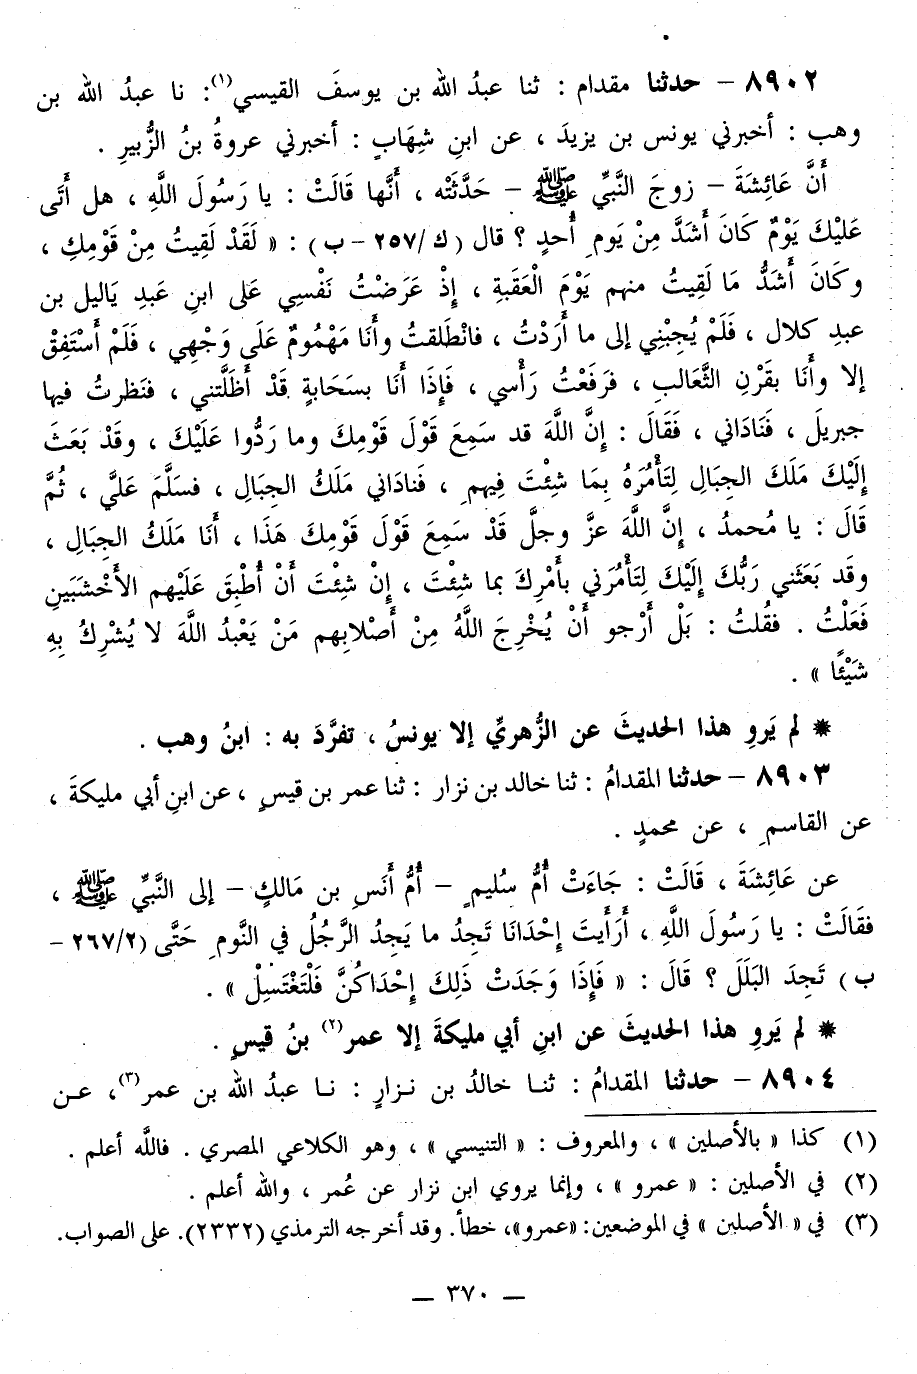 ٨٩٠٢ – حدثنا مقدام : ثنا عبدُ الله بن يوسفَ القيسي(١): نا عبدُ الله بن
وهب : أخبرني يونس بن يزيدَ ، عن ابنِ شِهَابٍ : أخبرني عروةُ بنُ الزُّبيرِ .
أَنَّ عَائِشَةَ – زوجَ النَّبيِّ ﷺ – حَدَّثَتْه ، أَنَّها قَالَتْ : يا رَسُولَ اللَّهِ ، هل أَتَى
عَلَيْكَ يَوْمٌ كَانَ أَشَدَّ مِنْ يَومِ أُحدٍ ؟ قال (ك /٢٥٧ – ب) : « لَقَدْ لَقِيتُ مِنْ قَوْمِكِ ،
وكَانَ أَشَدُّ مَا لَقِيتُ منهم يَوْمَ الْعَقَبةِ ، إِذْ عَرَضْتُ نَفْسِي عَلى ابنِ عَبدِ يَاليل بن
عبدِ كلال ، فَلَمْ يُجِبْنِي إلى ما أَرَدْتُ ، فانْطَلَقتُ وأَنَا مَهْمُومٌ عَلَى وَجْهِي ، فَلَمْ أَسْتَفِقْ
إلا وأَنَا بقَرْنِ الثَّعَالبِ ، فرَفَعْتُ رَأْسي ، فَإِذَا أَنَا بسَحَابةٍ قَدْ أَظَلَّتني ، فنَظرتُ فيها
جبريلَ ، فَنَادَاني ، فَقَالَ : إِنَّ اللَّهَ قد سَمِعَ قَوْلَ قَومِكَ وما رَدُّوا عَلَيْكَ ، وقَدْ بَعَثَ
إِلَيْكَ مَلَكَ الجِبَالِ لِتَأْمُرَهُ بِمَا شِئْتَ فِيهم ، فَنادَاني مَلَكُ الجِبَالِ ، فسَلَّمَ عَليَّ ، ثُمَّ
قَالَ : يا مُحمدُ ، إِنَّ اللَّهَ عزَّ وجلَّ قَدْ سَمِعَ قَوْلَ قَوْمِكَ هَذَا ، أَنَا مَلَكُ الجِبَالِ ،
وقَد بَعَثَني رَبُّكَ إِلَيْكَ لِتَأْمُرَني بأَمْرِكَ بما شِئْتَ ، إِنْ شِئْتَ أَنْ أُطْبِقَ عَلَيْهم الأَخْشَبَينِ
فَعَلْتُ . فقُلتُ : بَلْ أَرْجو أَنْ يُخْرِجَ اللَّهُ مِنْ أَصْلابِهم مَنْ يَعْبدُ اللَّهَ لا يُشْرِكُ بِهِ
شَيْئًا » .
* لم يَروِ هذا الحديثَ عن الزُّهريِّ إلا يونسُ ، تفرَّدَ به : ابنُ وهب .
٨٩٠٣ – حدثنا المقدامُ : ثنا خالد بن نزار : ثنا عمر بن قيسٍ ، عن ابنِ أبي مليكةَ ،
عن القاسمِ ، عن محمدٍ .
عن عَائِشَةَ ، قَالَتْ : جَاءَتْ أُمُّ سُليمٍ – أُمُّ أَنَسِ بن مَالكٍ – إلى النَّبيِّ ﷺ ،
فقَالَتْ : يا رَسُولَ اللَّهِ ، أَرَأَيتَ إِحْدَانَا تَجِدُ ما يَجِدُ الرَّجُلُ في النَّومِ حَتَّى (٢/٢٦٧ –
ب) تَجِدَ البَلَلَ ؟ قَالَ : « فَإِذَا وَجَدَتْ ذَلِكَ إِحْدَاكُنَّ فَلْتَغْتَسِلْ » .
* لم يَروِ هذا الحديثَ عن ابنِ أبي مليكةَ إلا عمر(٢) بنُ قيسٍ .
٨٩٠٤ – حدثنا المقدامُ : ثنا خالدُ بن نزارٍ : نا عبدُ الله بن عمر(٣)، عن
(١) كذا « بالأصلين » ، والمعروف : « التنيسي » ، وهو الكلاعي المصري . فاللَّه أعلم .
(٢) في الأصلين : « عمرو » ، وإنما يروي ابن نزار عن عُمر ، والله أعلم .
(٣) في « الأصلين » في الموضعين: «عمرو»، خطأ. وقد أخرجه الترمذي (٢٣٣٢). على الصواب.
– ٣٧٠ –